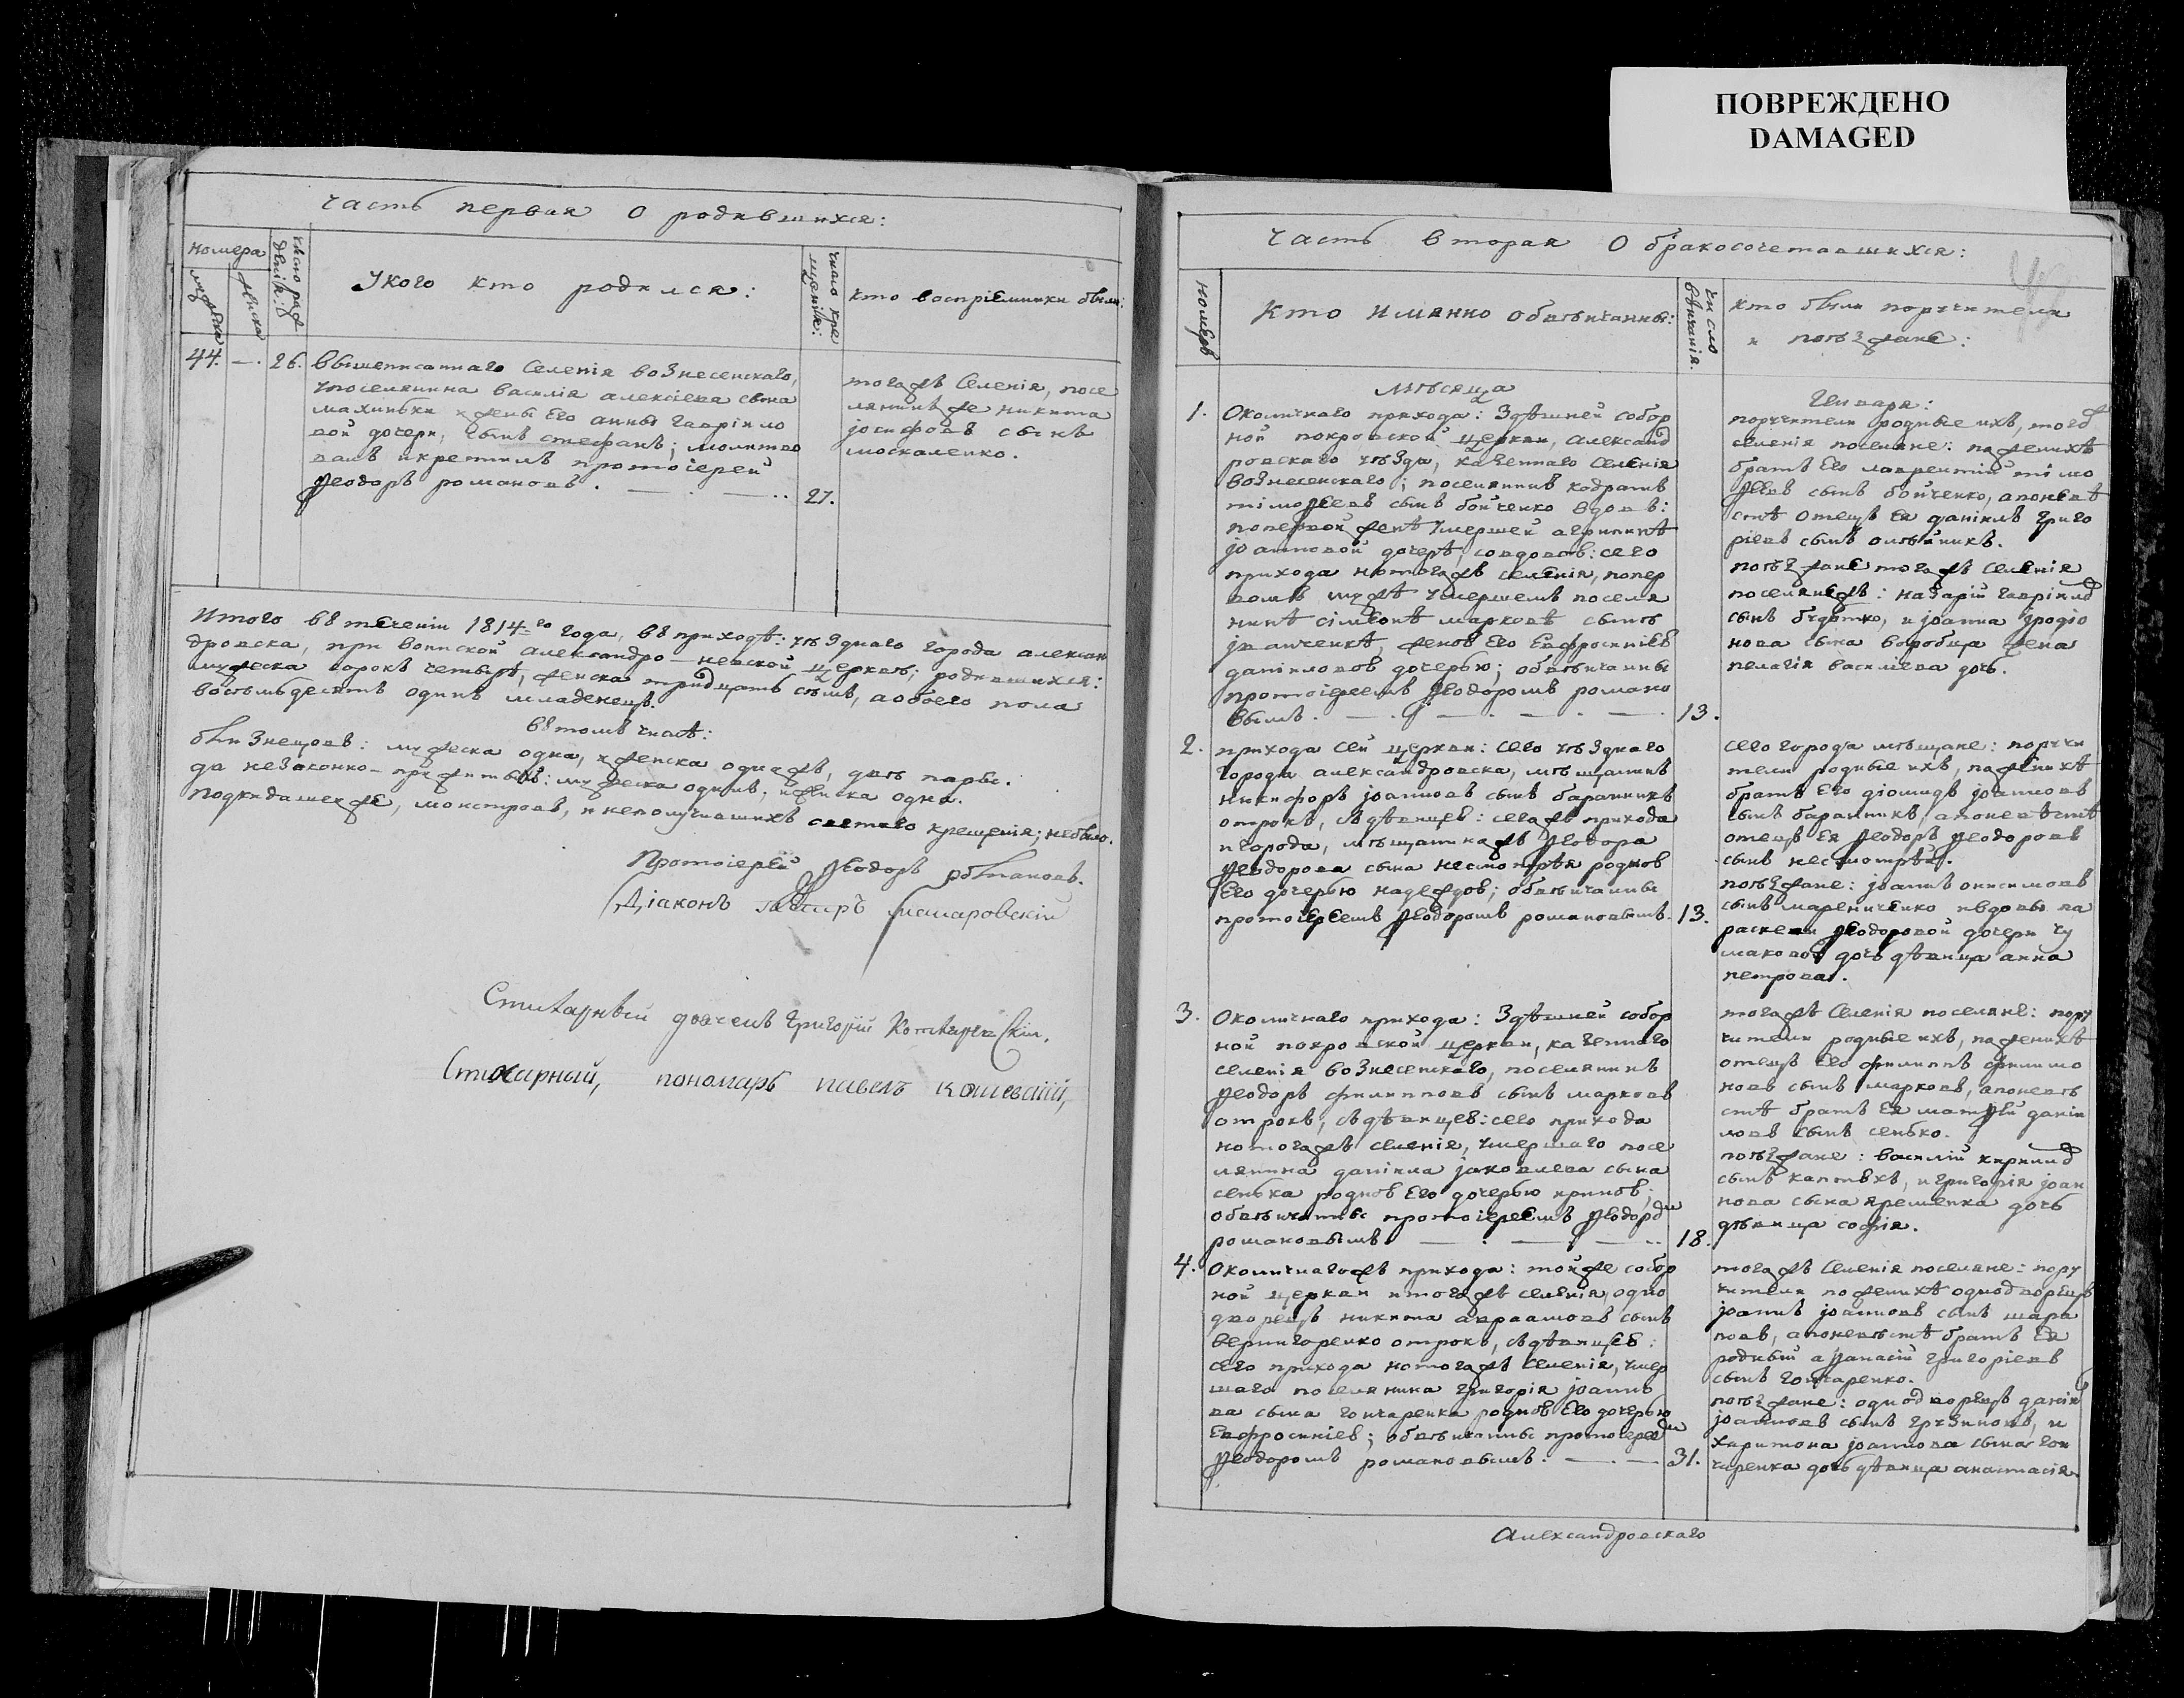 ПОВРЕЖДЕНО
DAMAGED
Часть первая О родившихся:
номера
мужеска
женска
число рожденія:
У кого кто родился:
число крещенія:
кто воспріемники были:
44. —. 26. вышеписаннаго Селенія вознесенскаго,
поселянина василія алексіева сына
махиньки и жены Его анны гавріило
вой дочери, сынъ стефанъ; молитво
валъ и крестилъ протоіерей
Ѳеодоръ романовъ. — . — .. 27.
тогожъ Селенія, посе
лянинъ же никита
іосифовъ сынъ
москаленко.
Итого въ теченіи 1814-го года, въ приходѣ: уѣзднаго города алексан
дровска, при воинской александро-невской церквѣ; родившихся:
мужеска сорокъ четыре, женска тридцать семь, а обоего пола
восемьдесятъ одинъ младенецъ.
въ томъ числѣ:
близнецовъ: мужеска одна, и женска одна жъ, двѣ пары.
да незаконно-прижитыхъ: мужеска одинъ, и женска одна.
подкидышей же, монстровъ, и неполучившихъ святаго крещенія; небыло.
Протоіерей Ѳеодоръ романовъ.
Діаконъ макаровскій
Стихарный дьячекъ григорій Котляревскій.
Стихарный, пономарь павелъ кошевскій,
Часть вторая О бракосочетавшихся:
номеръ
Кто имянно обвѣнчанны:
число вѣнчанія.
кто были поручители
и поѣзжане:
мѣсяца
Генваря:
1. Околичнаго прихода: здѣшней собор
ной покровской церкви, александ
ровскаго уѣзда, казеннаго селенія
вознесенскаго; поселянинъ кодратъ
тимоѳеевъ сынъ бойченко вдовъ:
по первой женѣ умершей агрипинѣ
іоанновой дочерѣ, со вдовою: сего
прихода и тогожъ селенія, по пер
вомъ мужѣ умершемъ поселя
нинѣ сімеонѣ марковѣ сынѣ
іванченкѣ, женою Его Евфросиніею
даніиловою дочерью; обвѣнчанны
протоіереемъ Ѳеодоромъ романо
вымъ. — . — . — . — . 13.
поручители родные ихъ, того ж
селенія поселяне: по женихѣ
братъ Его лаврентій тимо
ѳеевъ сынъ бойченко, а по невѣ
стѣ отецъ Ея даніилъ григо
ріевъ сынъ олѣйникъ.
поѣзжане тогожъ селенія
поселяне жъ: назарій гавріилов
сынъ будотко, и іоанна іродіо
нова сына воробца жена
пелагія василіева дочь.
2. прихода сей церкви: сего уѣзднаго
города александровска, мѣщанинъ
никифоръ іоанновъ сынъ баранникъ
отрокъ, съ дѣвицею: сегожъ прихода
и города, мѣщанина жъ Ѳеодора
Ѳеодорова сына несмотрѣя родною
Его дочерью надеждою; обвѣнчанны
протоіереемъ Ѳеодоромъ романовымъ. 13.
сего города мѣщане: поручи
тели родные ихъ, по женихѣ
братъ Его діомидъ іоанновъ
сынъ баранникъ, а по невѣстѣ
отецъ Ея Ѳеодоръ Ѳеодоровъ
сынъ несмотрѣй.
поѣзжане: іоаннъ онисимовъ
сынъ марениченко и вдовы па
раскевы Ѳеодоровой дочери чу
маковой дочь дѣвица анна
петрова.
3. Околичнаго прихода: здѣшней собор
ной покровской церкви, казеннаго
селенія вознесенскаго, поселянинъ
Ѳеодоръ филипповъ сынъ марковъ
отрокъ, съ дѣвицею: сего прихода
и тогожъ селенія, умершаго посе
лянина даніила іаковлева сына
сенька родною Его дочерью ириною;
обвѣнчанны протоіереемъ Ѳеодором
романовымъ. — . — . — .. 18.
тогожъ Селенія поселяне: пору
чители родные ихъ, по женихѣ
отецъ Его филиппъ филимо
новъ сынъ марковъ, а по невѣ
стѣ братъ Ея матѳей даніи
ловъ сынъ сенько.
поѣзжане: василій кирилов
сынъ каптюхъ, и григорія іоан
нова сына яременка дочь
дѣвица софія.
4. Околичнагожъ прихода: тойже собор
ной церкви и тогожъ селенія, одно
дворецъ никита авраамовъ сынъ
вернигоренко отрокъ, съ дѣвицею:
сего прихода и тогожъ селенія, умер
шаго поселянина григорія іоанно
ва сына гончаренка родною Его дочерью
Евфросиніею; обвѣнчанны протоіереем
Ѳеодоромъ романовымъ. — . — 31.
тогожъ Селенія поселяне: пору
чители по женихѣ однодворецъ
іоаннъ іоанновъ сынъ шара
повъ, а по невѣстѣ братъ Ея
родный аѳанасій григоріевъ
сынъ гончаренко.
поѣзжане: однодворецъ даніил
іоанновъ сынъ грузиновъ, и
харитона іоаннова сына гон
чаренка дочь дѣвица анастасія.
Александровскаго